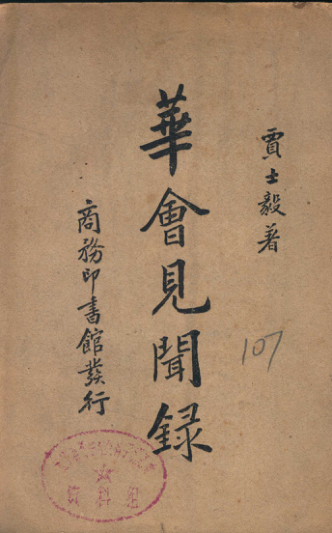 賈士毅著
華會見聞録
商務印書館發行
107
資料組